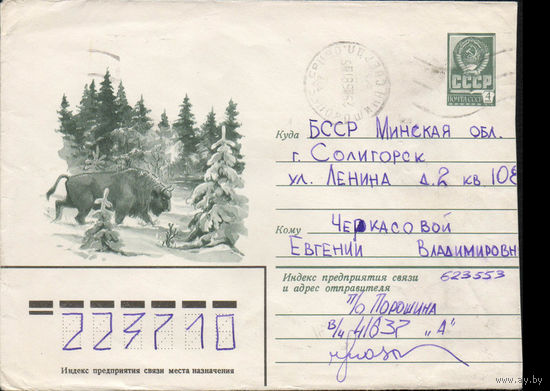 СССР
ПОЧТА СССР 4
Куда БССР Минская обл.
г. Солигорск
ул. Ленина д.2 кв. 108
Кому Черкасовой
Евгении Владимировн
Индекс предприятия связи 623553
и адрес отправителя
п/о Порошина
в/ч 41037 „А"
223710
Индекс предприятия связи места назначения
www.ay.by